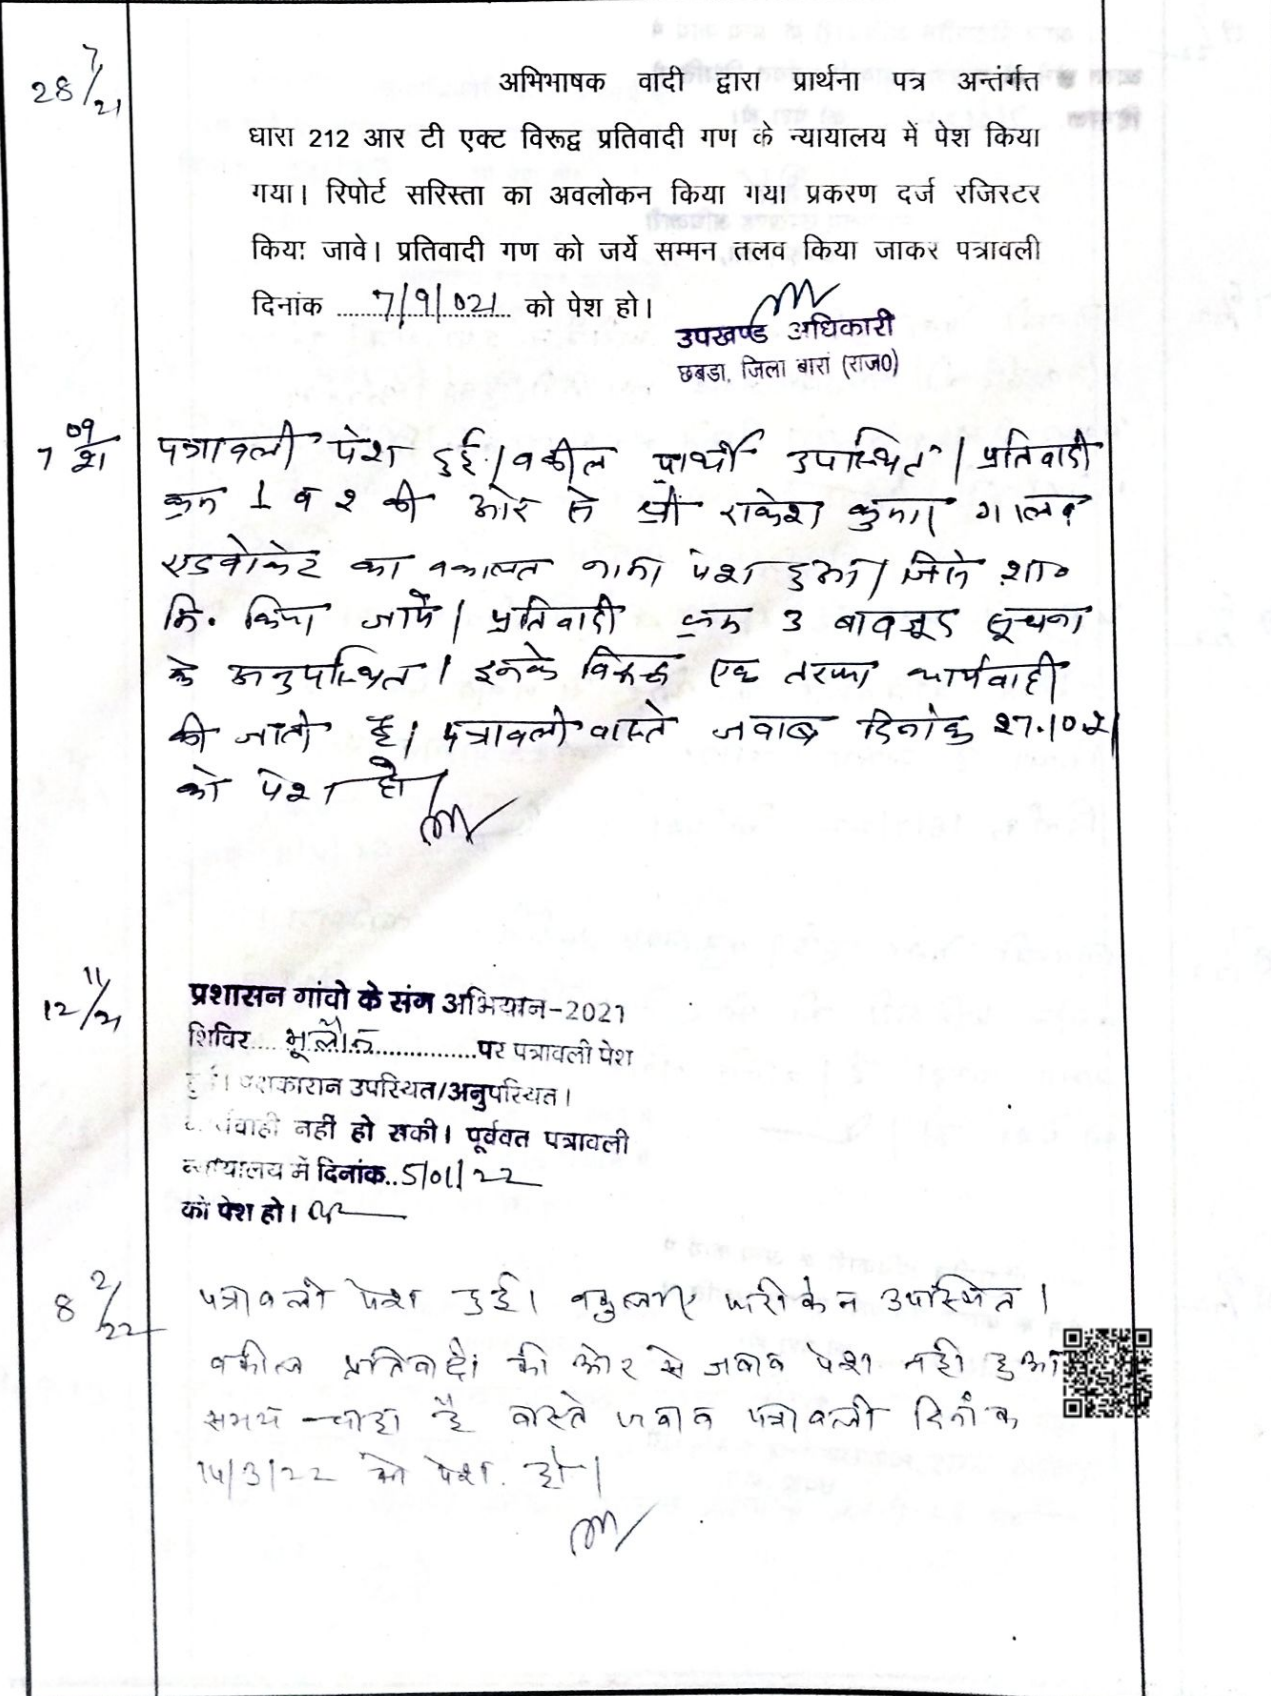 28/7/21
अभिभाषक वादी द्वारा प्रार्थना पत्र अन्तंर्गत
धारा 212 आर टी एक्ट विरूद्व प्रतिवादी गण के न्यायालय में पेश किया
गया। रिपोर्ट सरिस्ता का अवलोकन किया गया प्रकरण दर्ज रजिस्टर
किया जावे। प्रतिवादी गण को जर्ये सम्मन तलव किया जाकर पत्रावली
दिनांक 7/9/021 को पेश हो।
उपखण्ड अधिकारी
छबडा, जिला बारां (राज0)
7 09/21
पत्रावली पेश हुई। वकील प्रार्थी उपस्थित। प्रतिवादी
क्रम 1 व 2 की ओर से श्री राकेश कुमार गालव
एडवोकेट का वकालत नामा पेश हुआ। जिसे शा०
मि. किया जावे। प्रतिवादी क्रम 3 बावजूद सूचना
के अनुपस्थित। इनके विरूद्ध एक तरफा कार्यवाही
की जाती है। पत्रावली वास्ते जवाब दिनांक 27.10.21
को पेश हो।
12/11/21
प्रशासन गांवो के संग अभियान-2021
शिविर.... भूलोन ...............पर पत्रावली पेश
हुई। पक्षकारान उपस्थित/अनुपस्थित।
कार्यवाही नहीं हो सकी। पूर्ववत पत्रावली
न्यायालय में दिनांक..5/01/22
को पेश हो।
8 2/22
पत्रावली पेश हुई। वकुलाए फरीकेन उपस्थित।
वकील प्रतिवादी की ओर से जवाब पेश नही हुआ
समय चाहा है वास्ते जवाब पत्रावली दिनांक
14/3/22 को पेश. हो।